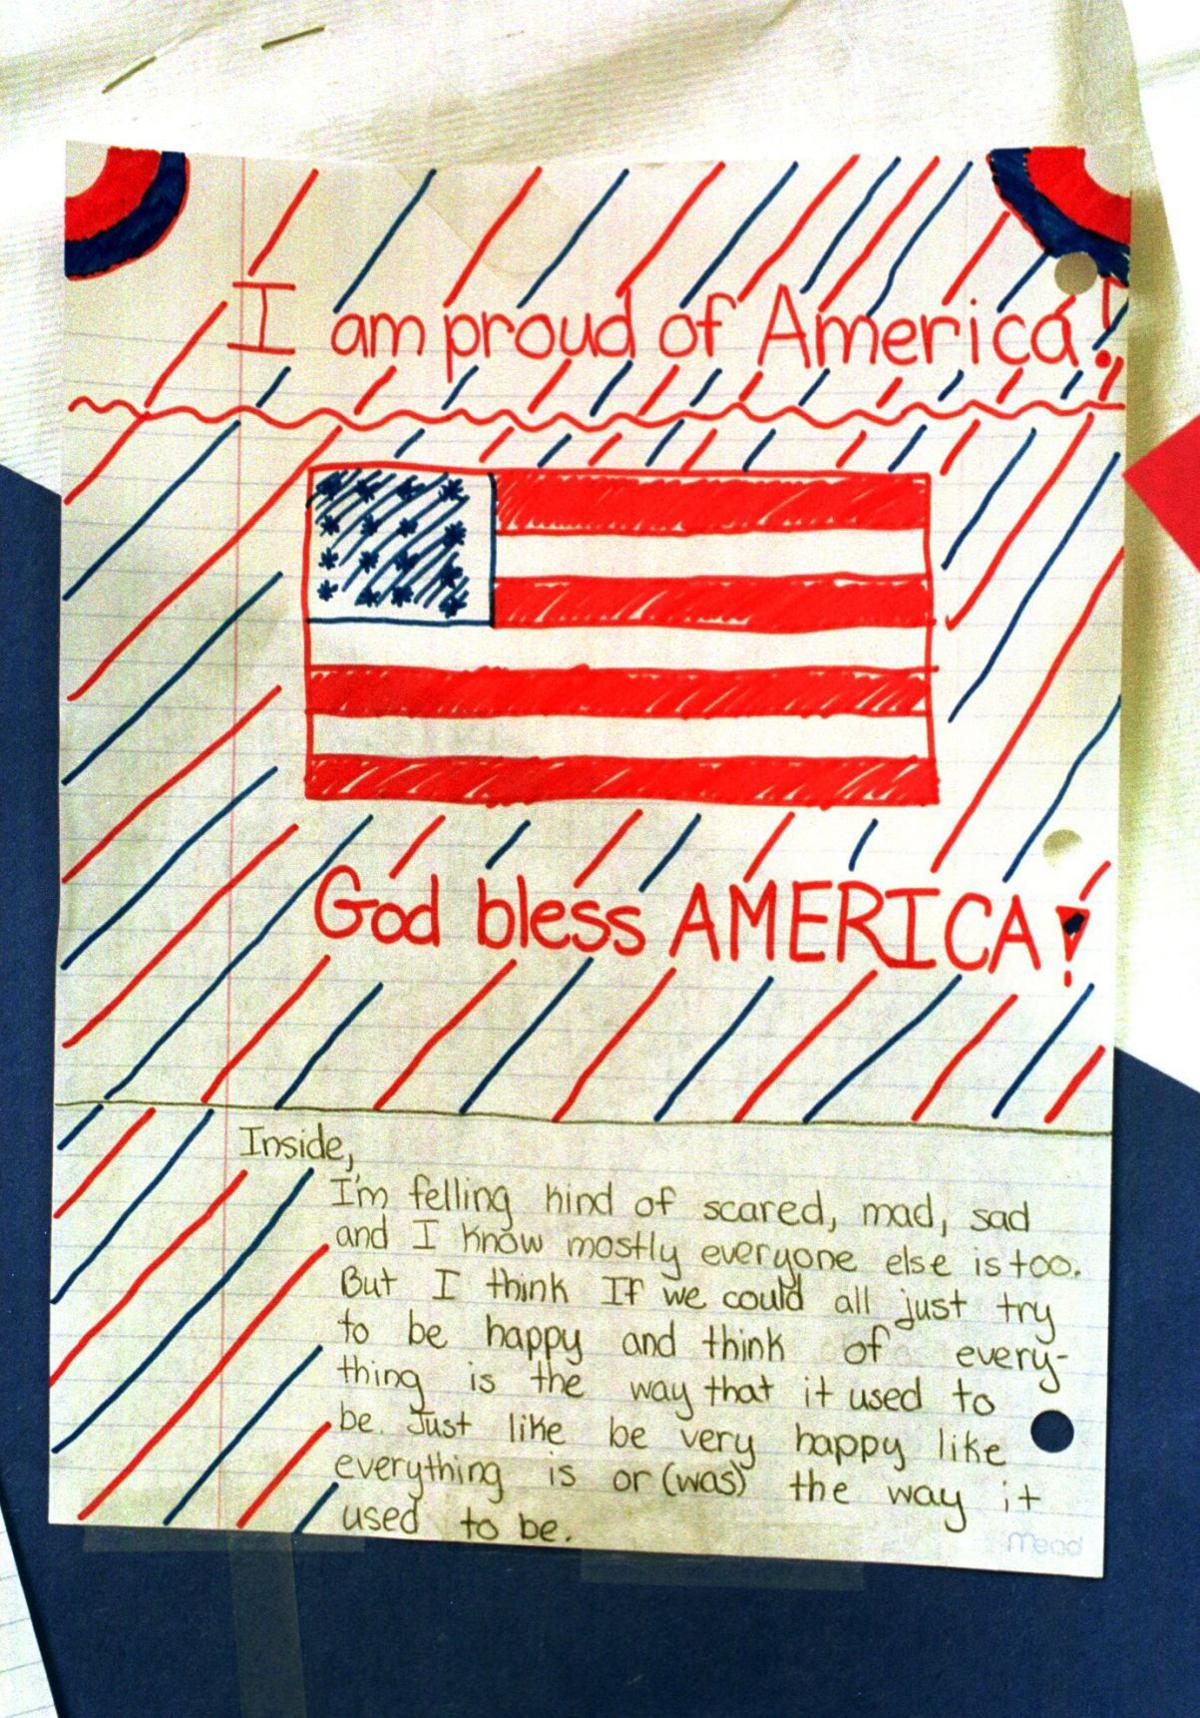 I am proud of America!
God bless AMERICA!
Inside,
I'm felling kind of scared, mad, sad
and I know mostly everyone else is too.
But I think If we could all just try
to be happy and think of every-
thing is the way that it used to
be. Just like be very happy like
everything is or (was) the way it
used to be.
Mead